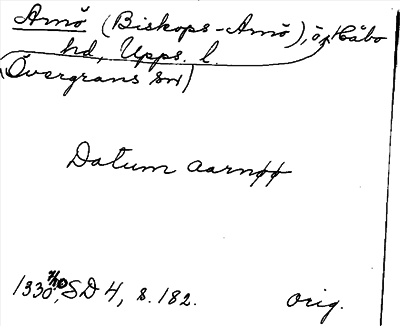 Arnö (Biskops-Arnö), ö, Håbo
hd, Upps. l.
(Övergrans sn)
Datum aarnøø
1330 7/10, SD 4, s. 182. orig.